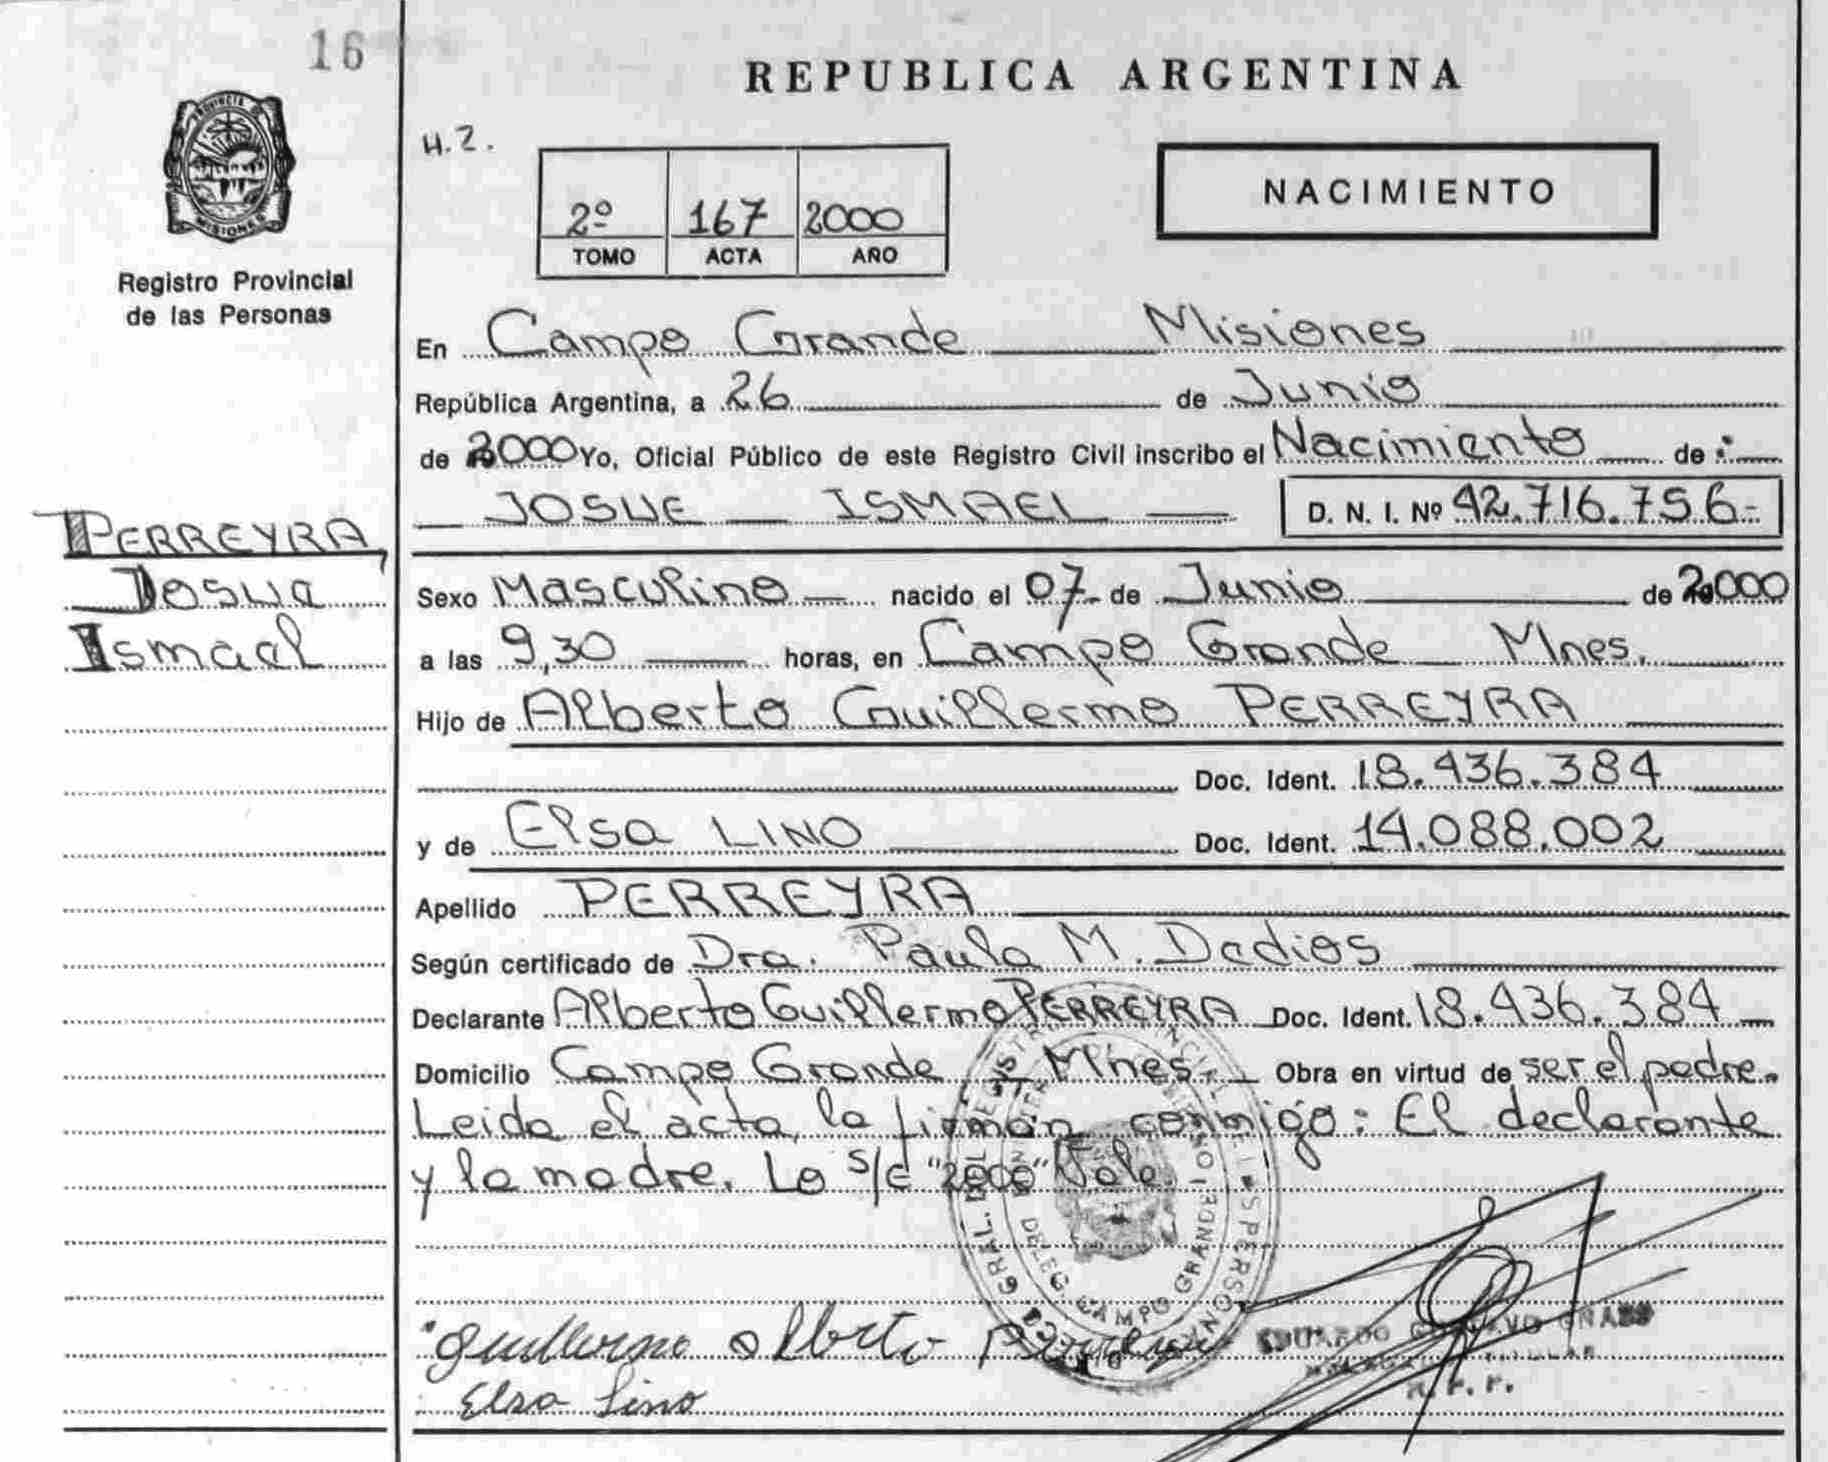 16
REPUBLICA ARGENTINA
H.2.
PROVINCIA
MISIONES
NACIMIENTO
2º 167 2000
TOMO ACTA AÑO
Registro Provincial
de las Personas
En Campo Grande Misiones
República Argentina, a 26 de Junio
de 2000 Yo, Oficial Público de este Registro Civil inscribo el Nacimiento de :
JOSUE ISMAEL D. N. I. Nº 42.716.756-
PERREYRA,
Josue
Ismael
Sexo Masculino nacido el 07 de Junio de 2000
a las 9,30 horas, en Campo Grande Mnes.
Hijo de Alberto Guillermo PERREYRA
Doc. Ident. 18.436.384
y de Elsa LINO Doc. Ident. 14.088.002
Apellido PERREYRA
Según certificado de Dra. Paula M. Dedios
Declarante Alberto Guillermo PERREYRA Doc. Ident. 18.436.384
Domicilio Campo Grande Mnes. Obra en virtud de ser el padre.
Leida el acta, la firman conmigo: El declarante
y la madre. Lo s/c "2000" Vale.
DELEG. CAMPO GRANDE
Guillermo Alberto
EDUARDO
Elsa Lino
R.P.P.